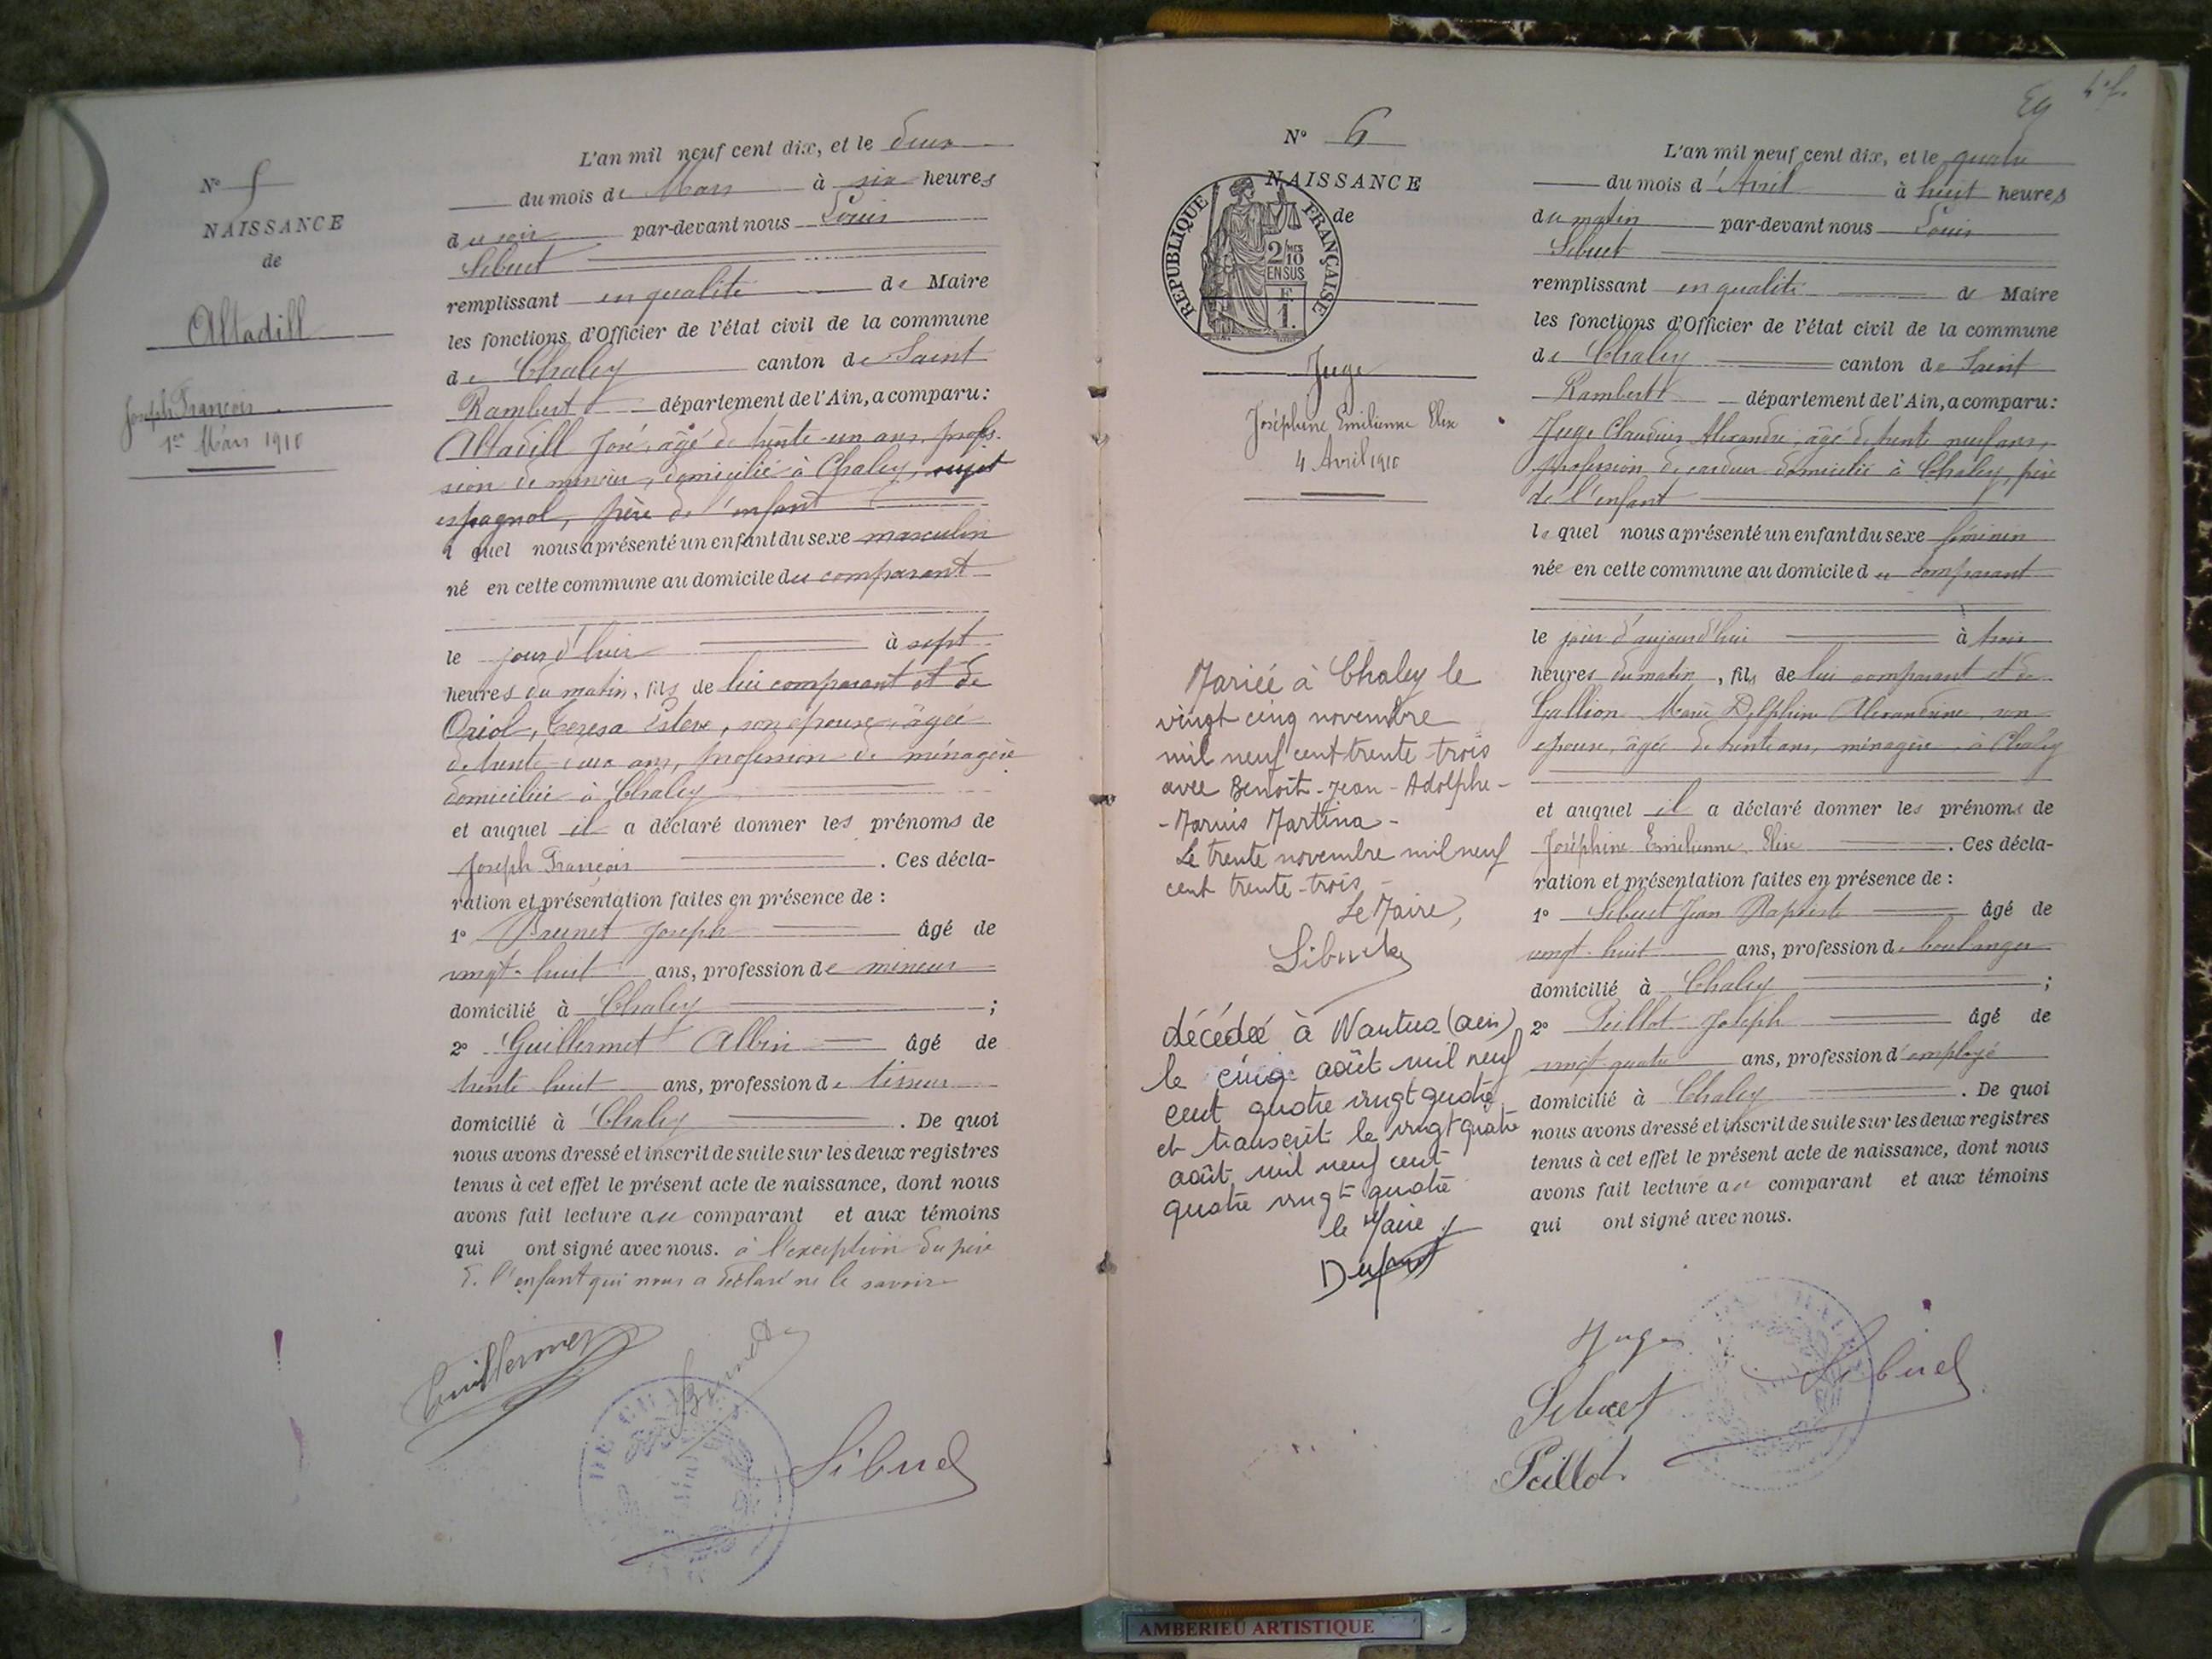 N° 5
NAISSANCE
de
Altadill
Joseph François
1er Mars 1910
L'an mil neuf cent dix, et le deux
du mois de Mars à six heures
du soir par-devant nous Louis
Sibuet
remplissant en qualité de Maire
les fonctions d'Officier de l'état civil de la commune
de Chaley canton de Saint
Rambert département de l'Ain, a comparu :
Altadill José, âgé de trente-un ans, profes-
sion de mineur, domicilié à Chaley, sujet
espagnol, père de l'enfant
l quel nous a présenté un enfant du sexe masculin
né en cette commune au domicile du comparant
le jour d'hier à sept
heures du matin, fils de lui comparant et de
Oriol, Teresa Esteve, son épouse, âgée
de trente-deux ans, profession de ménagère
domiciliée à Chaley
et auquel il a déclaré donner les prénoms de
Joseph François. Ces décla-
ration et présentation faites en présence de :
1° Brunet Joseph âgé de
vingt-huit ans, profession de mineur
domicilié à Chaley ;
2° Guillermet Albin âgé de
trente huit ans, profession de tisseur
domicilié à Chaley. De quoi
nous avons dressé et inscrit de suite sur les deux registres
tenus à cet effet le présent acte de naissance, dont nous
avons fait lecture au comparant et aux témoins
qui ont signé avec nous. à l'exception du père
de l'enfant qui nous a déclaré ne le savoir
Guillermet
Brunet
Sibuet
Eg
N° 6
NAISSANCE
de
REPUBLIQUE FRANÇAISE
2/10 MES
EN SUS
F.
1.
Juge
Joséphine Emilienne Elise
4 Avril 1910
Mariée à Chaley le
vingt cinq novembre
mil neuf cent trente-trois
avec Benoit-Jean-Adolphe-
-Marius Martina-
Le trente novembre mil neuf
cent trente-trois-
Le Maire,
Sibuet
décédée à Nantua (ain)
le cinq août mil neuf
cent quatre vingt quatre
et transcrit le vingt quatre
août mil neuf cent
quatre vingt quatre
le Maire
L'an mil neuf cent dix, et le quatre
du mois d'Avril à huit heures
du matin par-devant nous Louis
Sibuet
remplissant en qualité de Maire
les fonctions d'Officier de l'état civil de la commune
de Chaley canton de Saint
Rambert département de l'Ain, a comparu :
Juge Claudius Alexandre, âgé de trente neuf ans,
profession de cardeur domicilié à Chaley, père
de l'enfant
le quel nous a présenté un enfant du sexe féminin
née en cette commune au domicile du comparant
le jour d'aujourd'hui à trois
heures du matin, fils de lui comparant et de
Gallion Marie Delphine Alexandrine, son
épouse, âgée de trente ans, ménagère à Chaley
et auquel il a déclaré donner les prénoms de
Joséphine Emilienne Elise. Ces décla-
ration et présentation faites en présence de :
1° Sibuet Jean Baptiste âgé de
vingt-huit ans, profession de boulanger
domicilié à Chaley ;
2° Peillot Joseph âgé de
vingt quatre ans, profession d'employé
domicilié à Chaley. De quoi
nous avons dressé et inscrit de suite sur les deux registres
tenus à cet effet le présent acte de naissance, dont nous
avons fait lecture au comparant et aux témoins
qui ont signé avec nous.
Juge
Sibuet
Sibuet
Peillot
AMBERIEU ARTISTIQUE